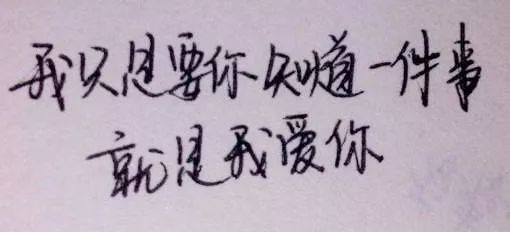 我只是要你知道一件事
就是我爱你